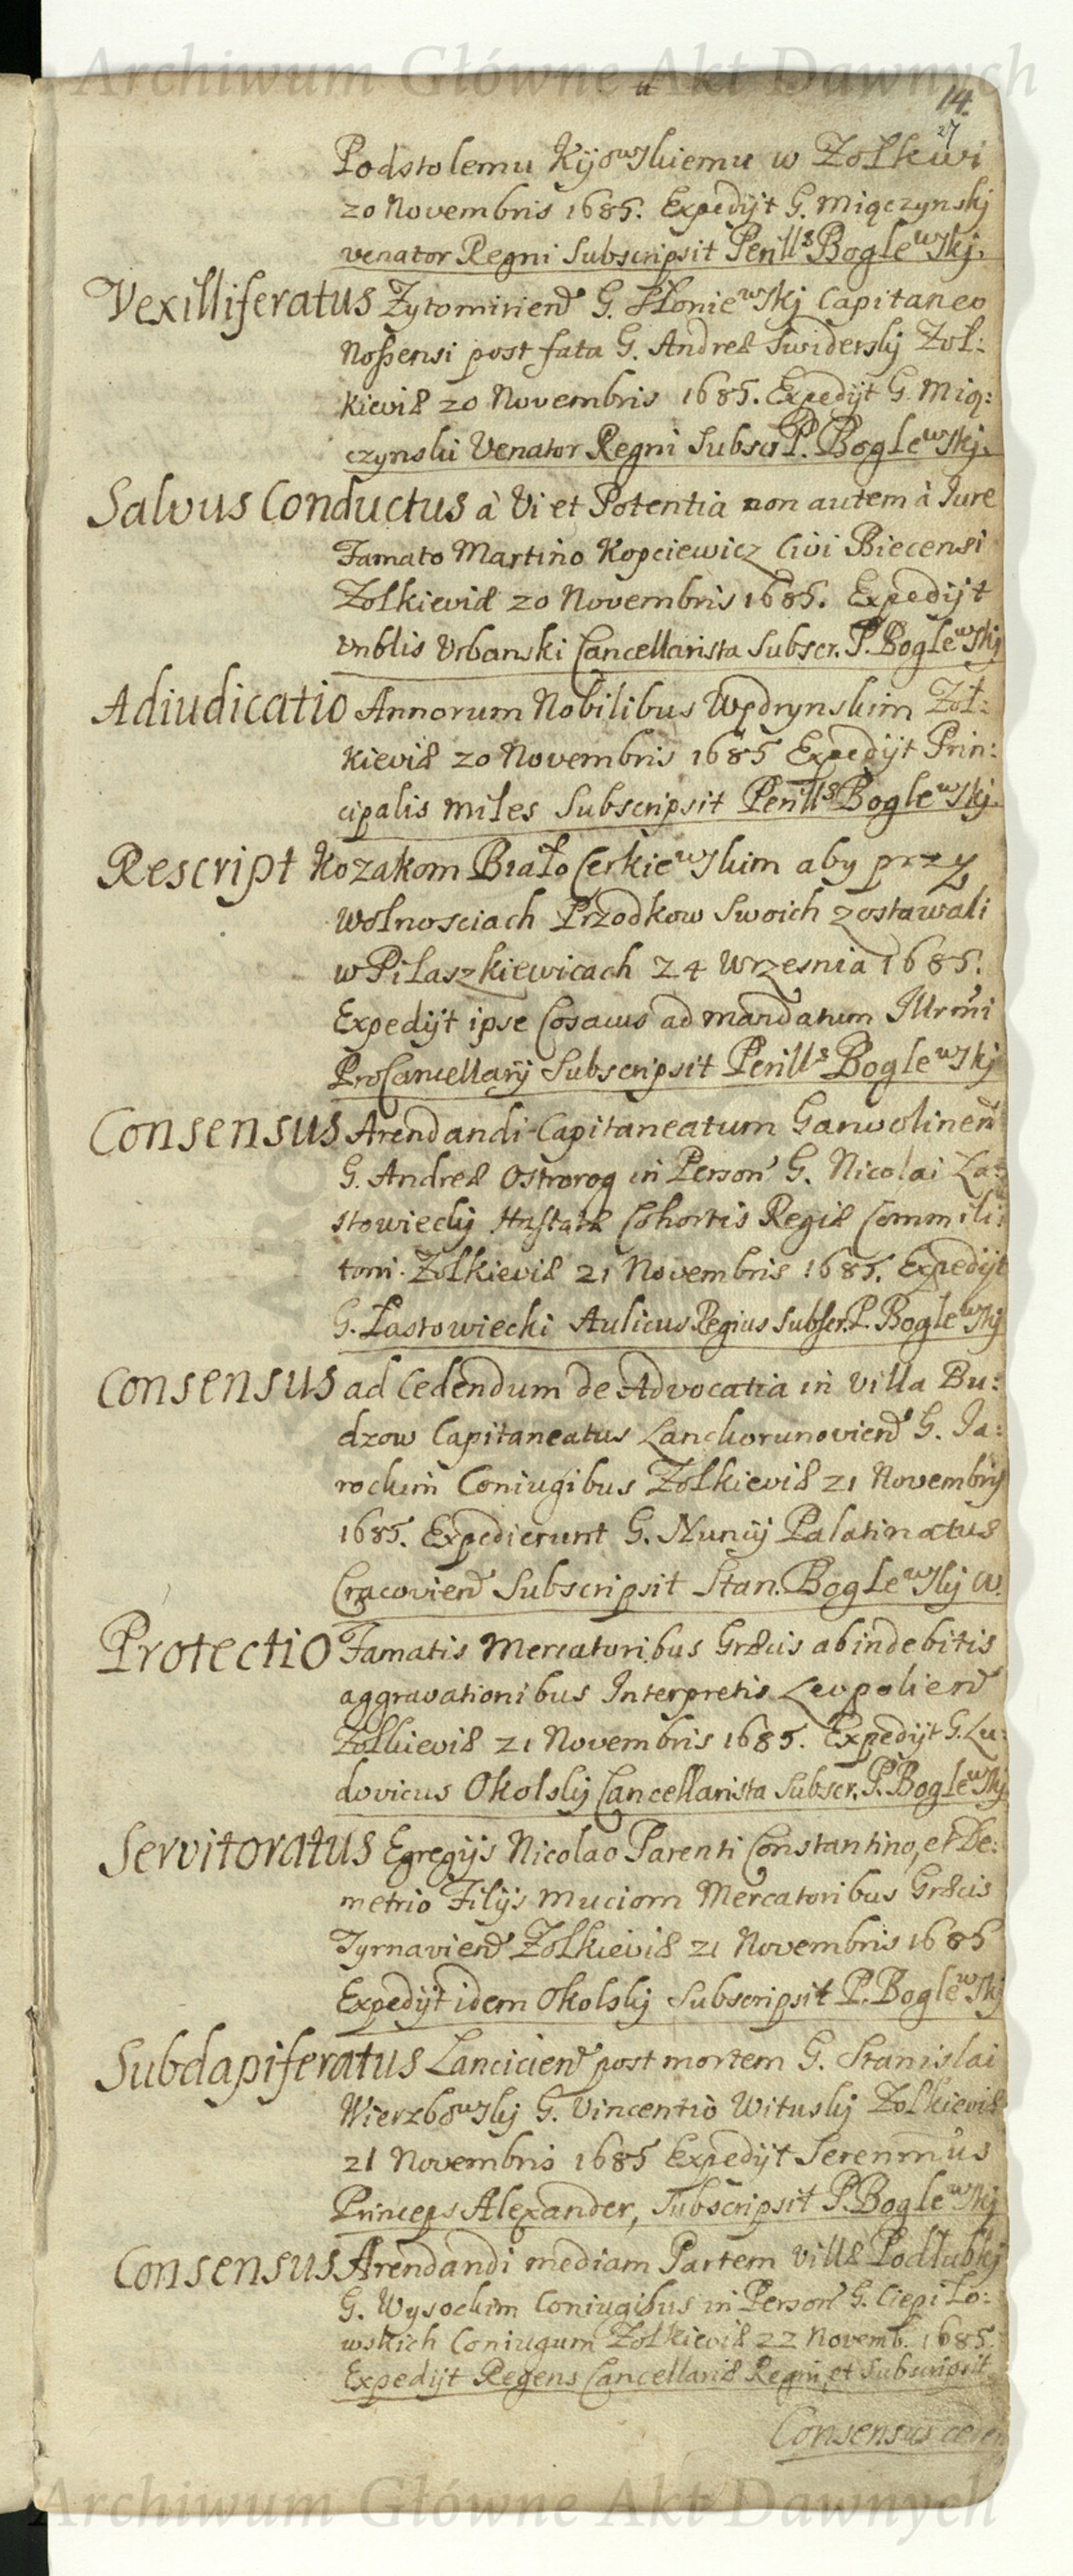 Archiwum Główne Akt Dawnych
14.
27
Podstolemu Kijowskiemu w Zołkwi
20 Novembris 1685. Expedijt G. Miączynskj
venator Regni Subscripsit Perill8 Boglewskj.
Vexilliferatus Zytomirien̄ G. Słoniewskj Capitaneo
Noszensi post fata G. Andreæ Swiderskj Zoł:
kieviæ 20 Novembris 1685. Expedijt G. Mią:
czynski Venator Regni Subscr P. Boglewskj.
Salvus Conductus à Vi et Potentia non autem à Jure
Famato Martino Kopciewicz Civi Biecensi
Zolkieviæ 20 Novembris 1685. Expedijt
Urbanski Cancellarista Subscr. P. Boglewskj
Adiudicatio Annorum Nobilibus Zoł:
kieviæ 20 Novembris 1685 Expedijt Prin:
cipalis Miles Subscripsit Perill8 Boglewskj
Rescript Kozakom Biało Cerkiewskim aby przy
Wolnosciach Przodkow Swoich zostawali
w Pilaszkiewicach 24 Wrzesnia 1685.
Expedijt ipse Cosacus ad mandatum Illrmi
ProCancellarij Subscripsit Perill8 Boglewskj
Consensus Arendandi Capitaneatum Garwolinen̄
G. Andreæ Ostrorog in Person̄ G. Nicolai La:
stowieckj Hastatæ Cohortis Regiæ Commili:
toni. Zolkieviæ 21 Novembris 1685. Expedijt
G. Lastowiecki Aulicus Regius Subscr. P. Boglewskj
Consensus ad Cedendum de Advocatia in Villa Bu:
dzow Capitaneatus Lanckorunovien̄ G. Ja:
rockim Coniugibus Zolkieviæ 21 Novembris
1685. Expedierunt G. Nuncij Palatinatus
Cracovien̄ Subscripsit Stan. Boglewskj
Protectio Famatis Mercatoribus Græcis ab indebitis
aggravationibus Interpretis Leopolien̄
Zolkieviæ 21 Novembris 1685. Expedijt G. Lu:
dovicus Okolskj Cancellarista Subscr. P. Boglewskj
Servitoratus Egregijs Nicolao Parenti Constantino, et De:
metrio Filijs Muciom Mercatoribus Græcis
Tyrnavien̄ Zolkieviæ 21 Novembris 1685
Expedijt idem Okolskj Subscripsit P. Boglewskj
Subdapiferatus Lancicien̄ post mortem G. Stanislai
Wierzbowskj G. Vincentio Wituskj Zolkieviæ
21 Novembris 1685 Expedijt Serenmus
Princeps Alexander, Subscripsit P. Boglewskj
Consensus Arendandi mediam Partem Villæ Podłubkj
G. Wysockim Coniugibus in Person̄ G. Ciepiło:
wskich Coniugum Zolkieviæ 22 Novemb. 1685.
Expedijt Regens Cancellariæ Regni, et Subscripsit
Consensus ceden
Archiwum Główne Akt Dawnych